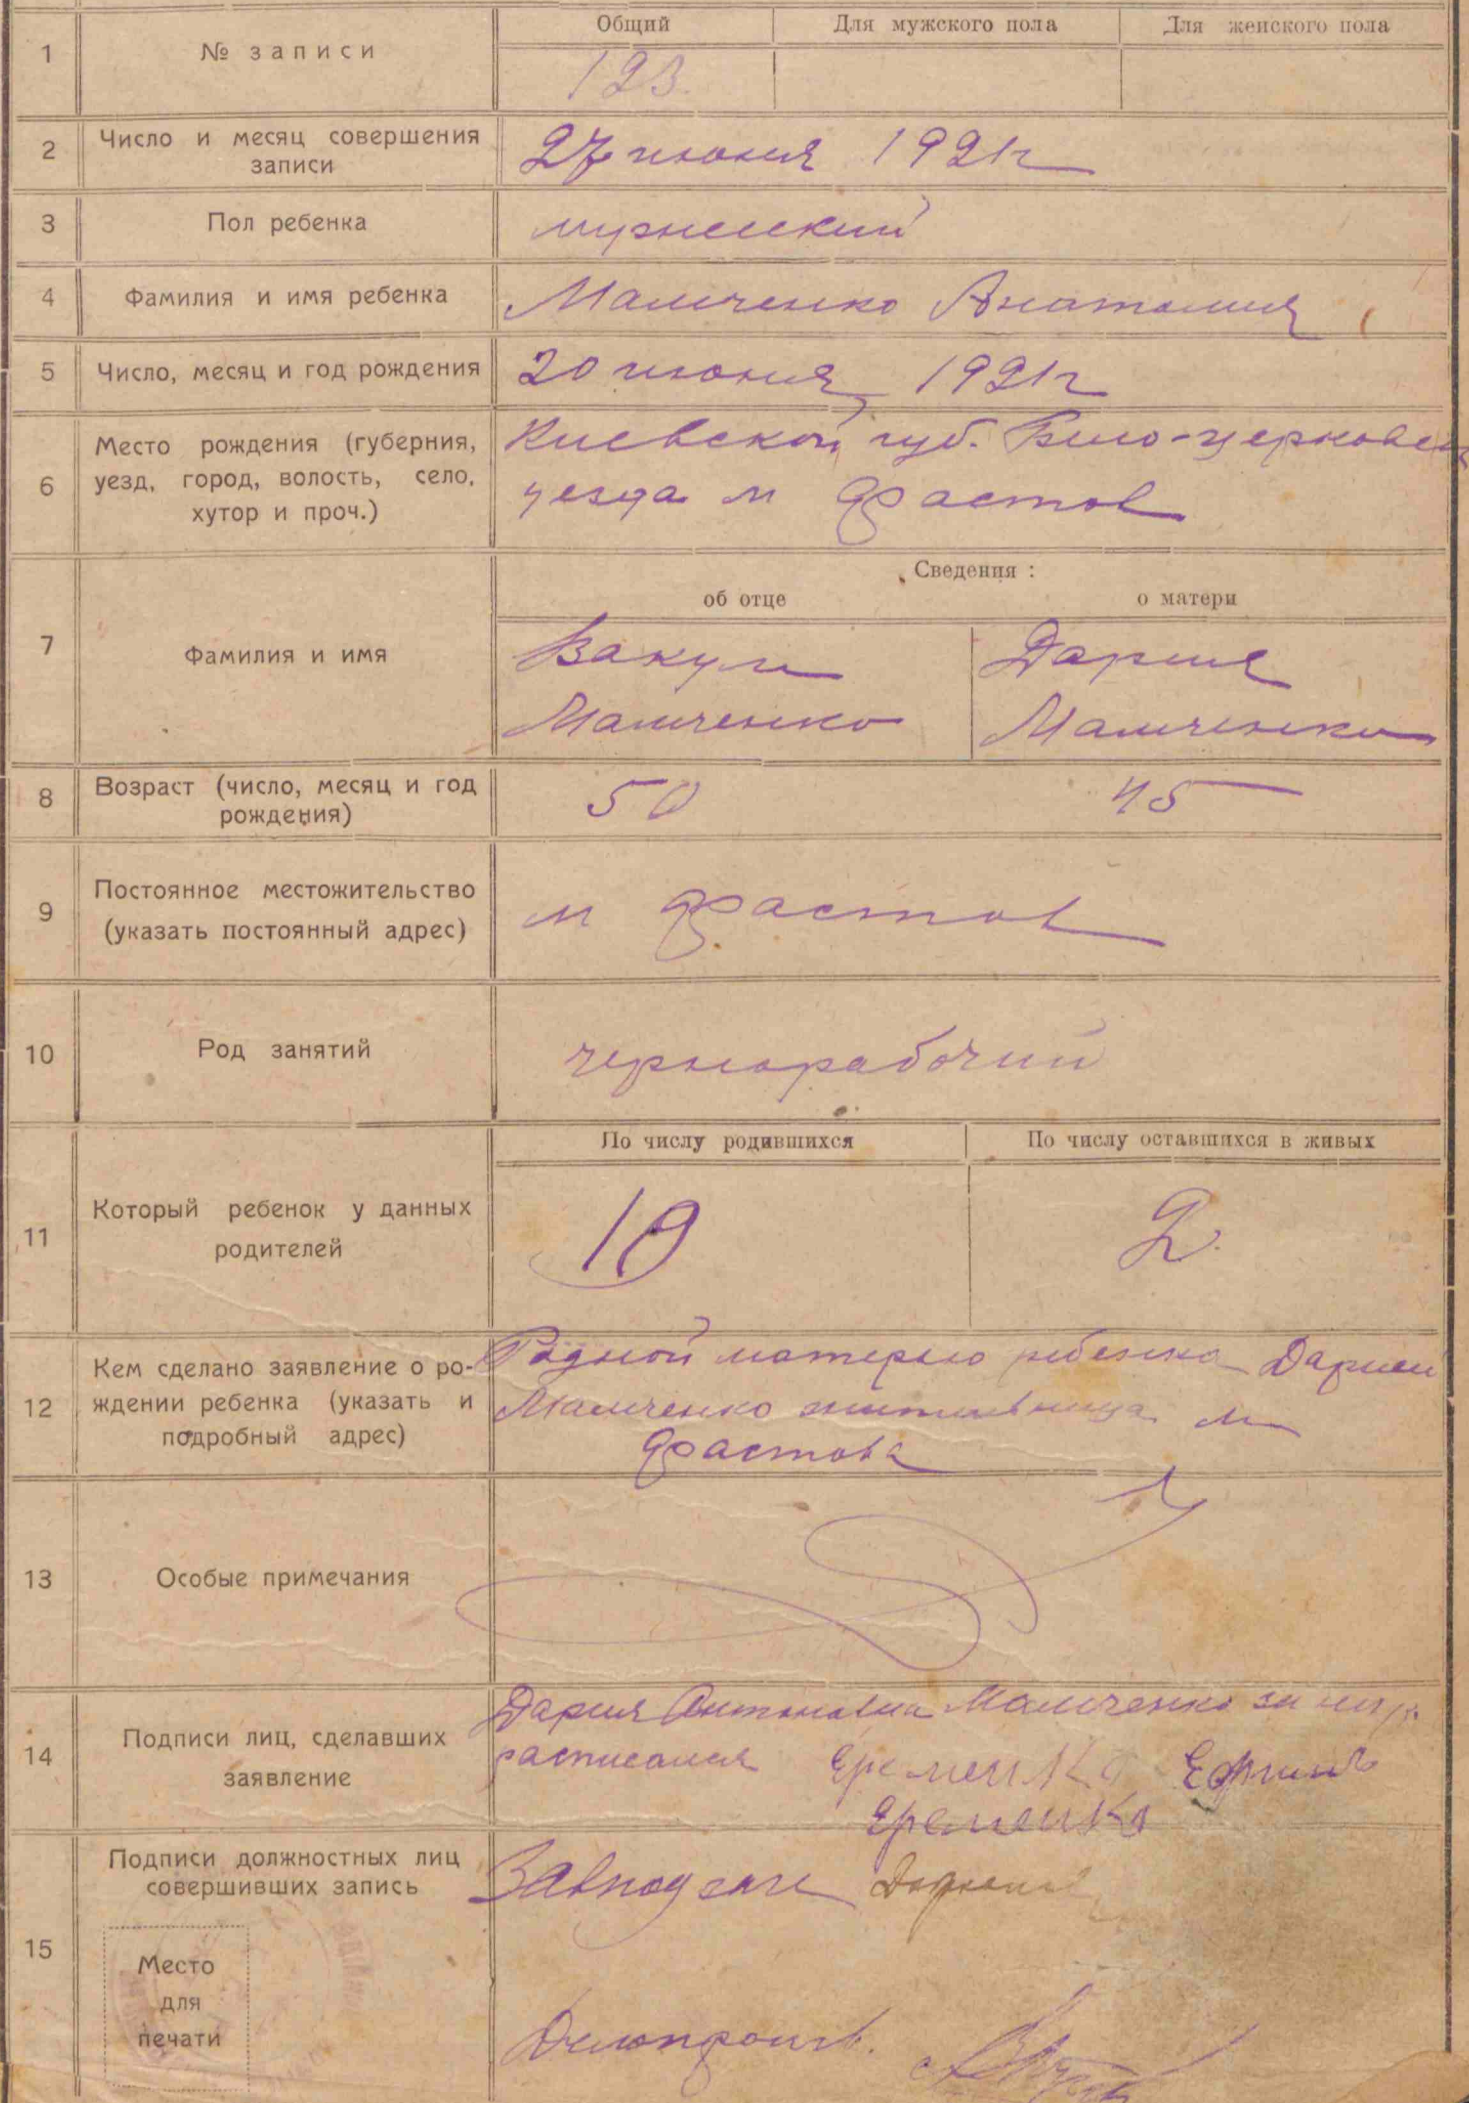 1
№ записи
Общий
Для мужского пола
Для женского пола
123.
2
Число и месяц совершения
записи
27 июня 1921г
3
Пол ребенка
мужеский
4
Фамилия и имя ребенка
Мамченко Анатолия
5
Число, месяц и год рождения
20 июня 1921г
6
Место рождения (губерния,
уезд, город, волость, село,
хутор и проч.)
Киевской губ. Бело-церковск
уезда м Фастов
Сведения :
об отце
о матери
7
Фамилия и имя
Вакула
Мамченко
Дария
Мамченко
8
Возраст (число, месяц и год
рождения)
50
45
9
Постоянное местожительство
(указать постоянный адрес)
м Фастов
10
Род занятий
чернорабочий
11
Который ребенок у данных
родителей
По числу родившихся
По числу оставшихся в живых
10
2.
12
Кем сделано заявление о ро-
ждении ребенка (указать и
подробный адрес)
Родной матерью ребенка Дарией
Мамченко жительница м
Фастова
13
Особые примечания
14
Подписи лиц, сделавших
заявление
Дария Антоновна Мамченко за негр.
расписался Еременко Ефим
Еременко
15
Подписи должностных лиц
совершивших запись
Завподзаг
Место
для
печати
Делопроизв.